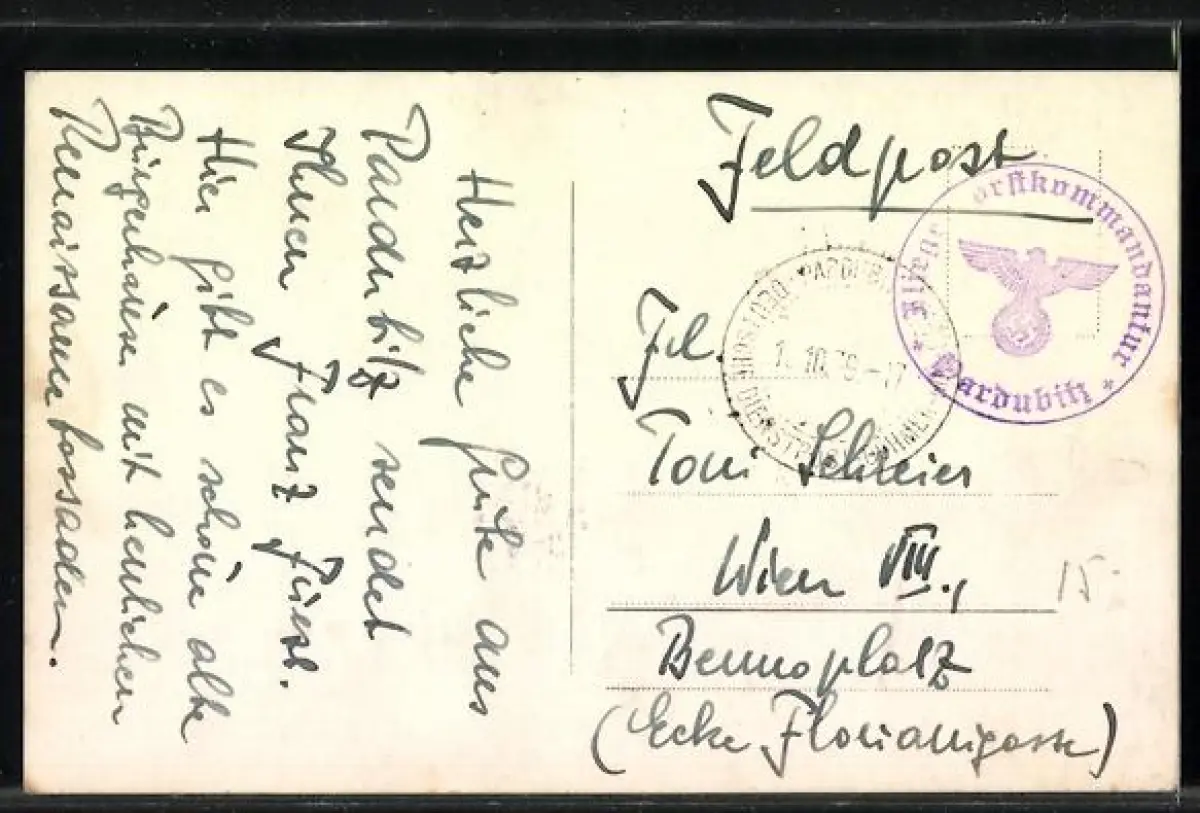 Herzliche Grüße aus
Pardubitz sendet
Ihnen Franz
Hier gibt es schöne alte
Bürgerhäuser mit herrlichen
Renaissancefassaden.
Feldpost
Frl.
Toni Schreier
Wien VIII.,
Bennoplatz
(Ecke Florianigasse)
Fliegerhorstkommandantur
* Pardubitz *
1. 10. 39.-17
DIENSTPOST BÖHMEN
15